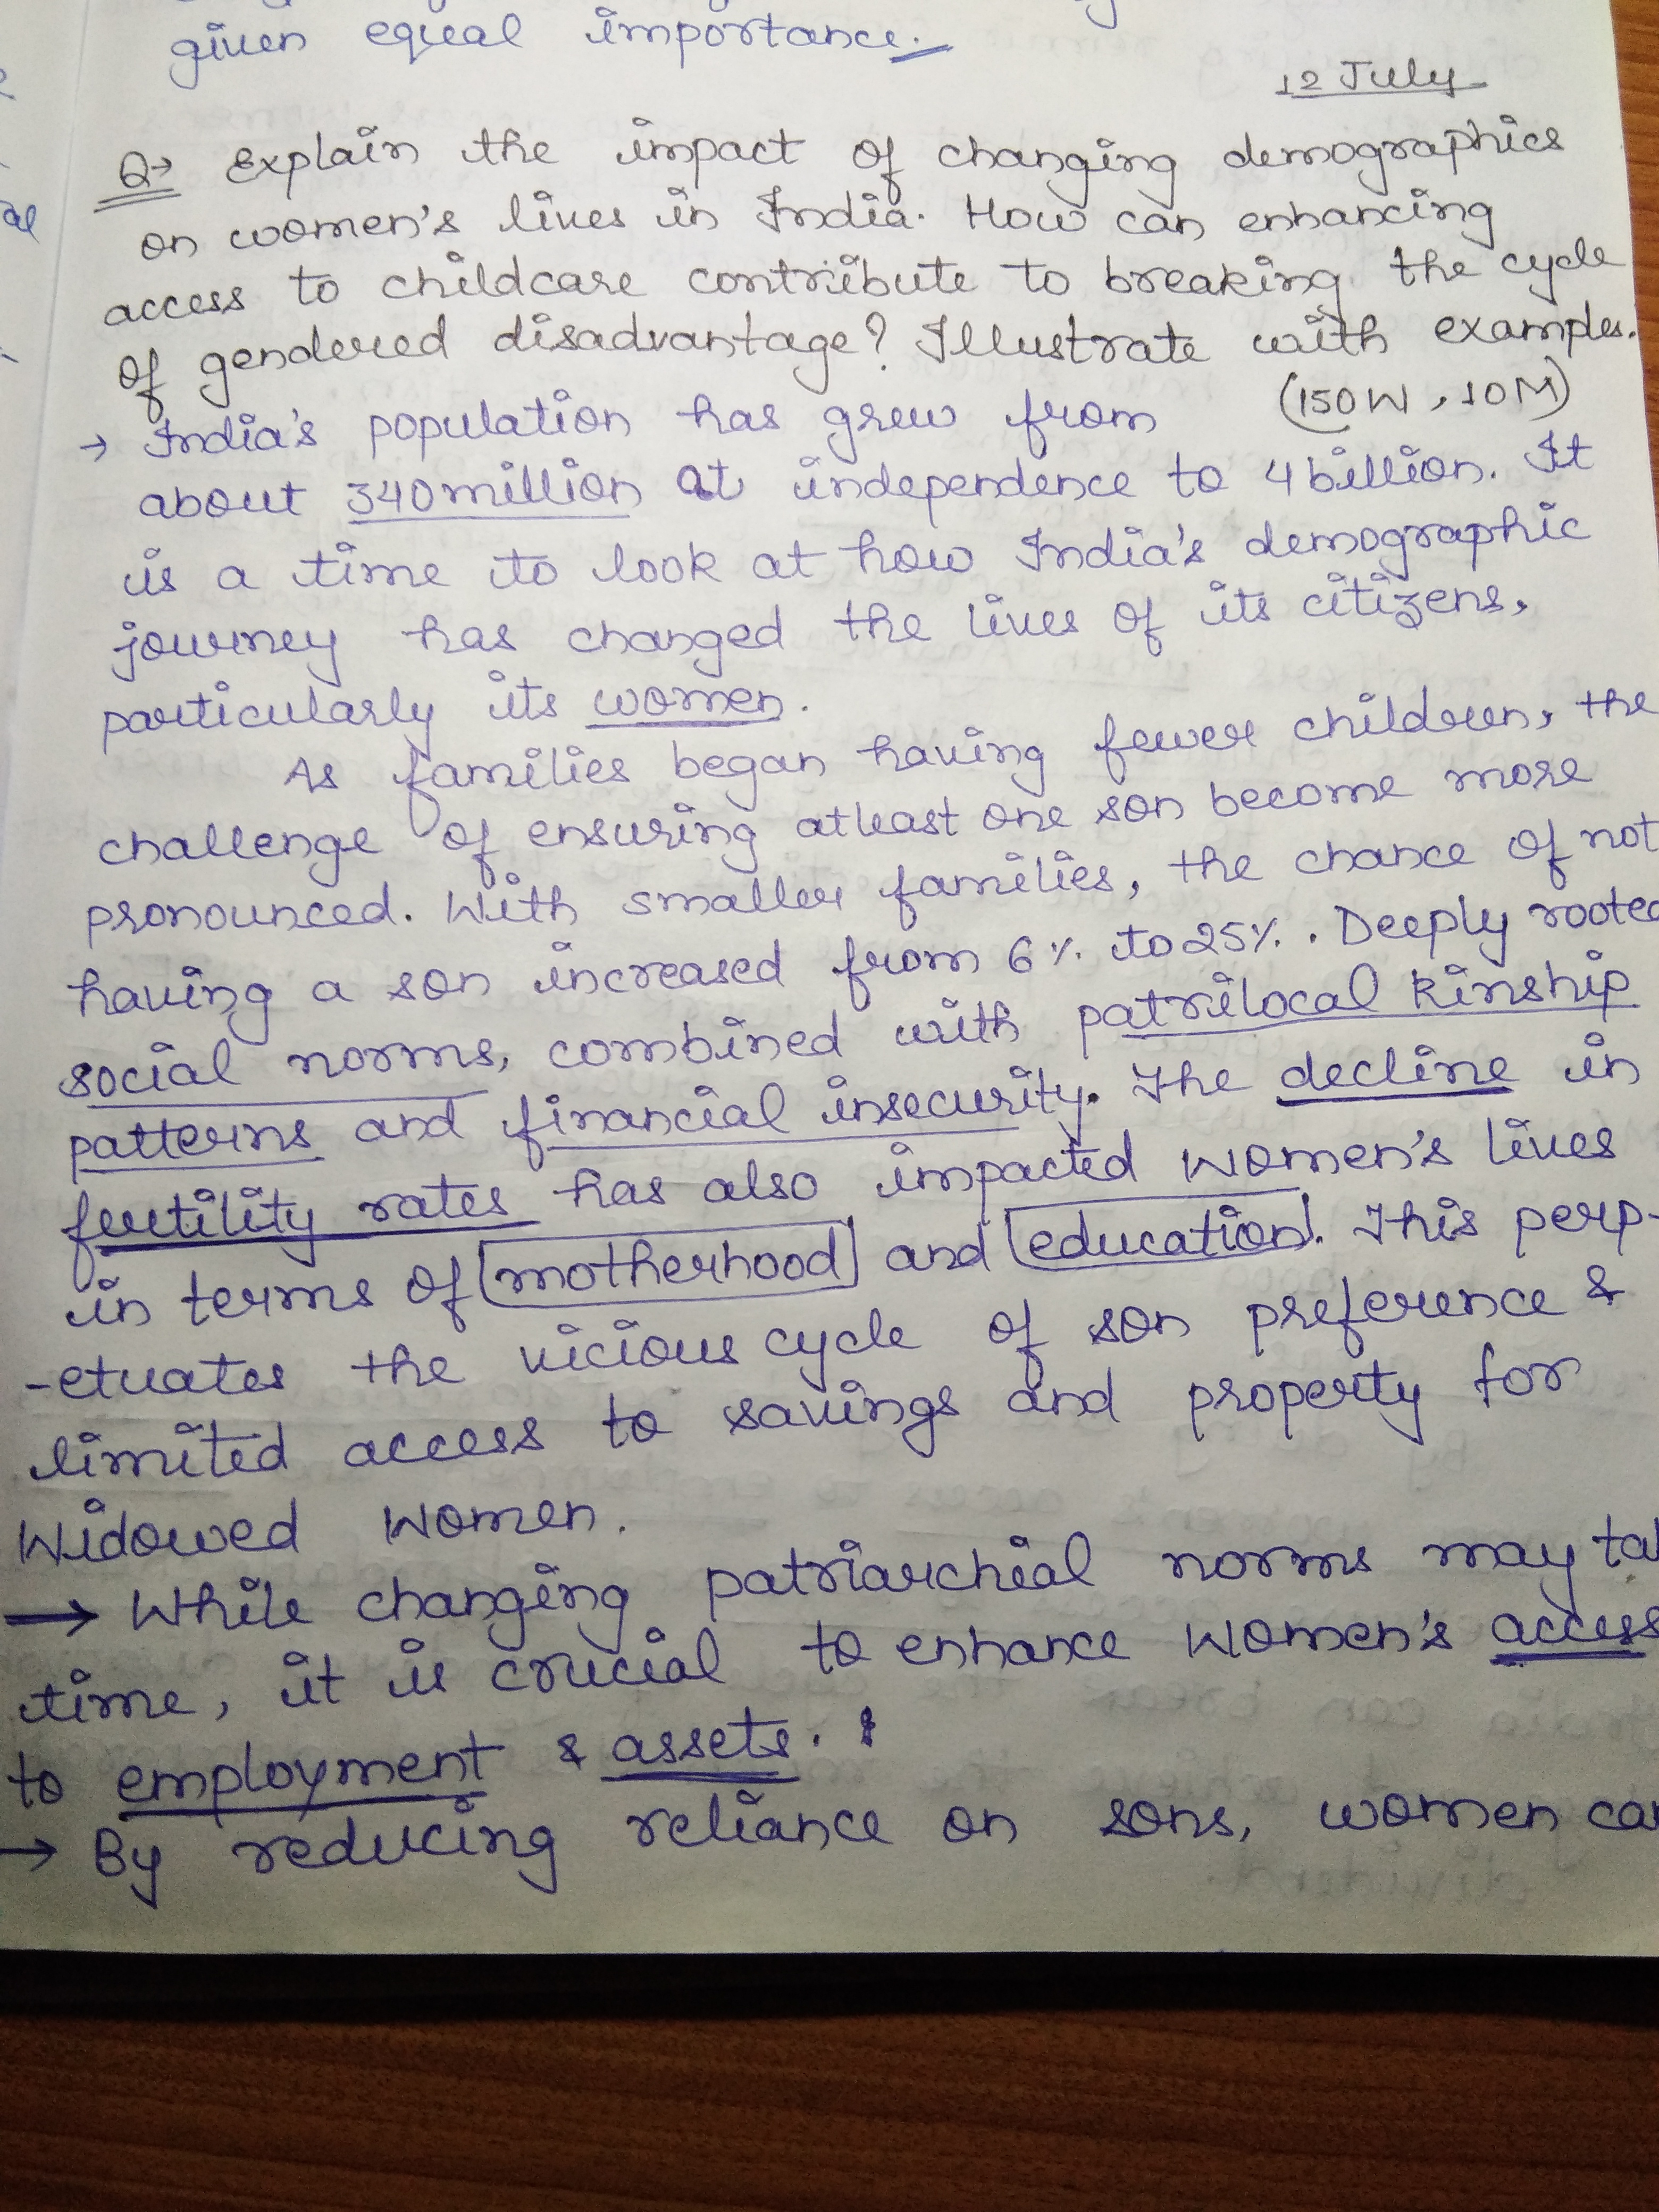 given equal importance.
12 July
Q→ Explain the impact of changing demographics
on women's lives in India. How can enhancing
access to childcare contribute to breaking the cycle
of gendered disadvantage? Illustrate with examples.
(150W, 10M)
→ India's population has grew from
about 340million at independence to 4 billion. It
is a time to look at how India's demographic
journey has changed the lives of its citizens,
particularly its women.
As families began having fewer children, the
challenge of ensuring atleast one son become more
pronounced. With smaller families, the chance of not
having a son increased from 6% to 25%. Deeply rooted
social norms, combined with patrilocal kinship
patterns and financial insecurity. The decline in
fertility rates has also impacted women's lives
in terms of motherhood and education. This perp-
-etuates the vicious cycle of son preference &
limited access to savings and property for
widowed women.
→ While changing patriarchial norms may ta
time, it is crucial to enhance women's access
to employment & assets.
→ By reducing reliance on sons, women can